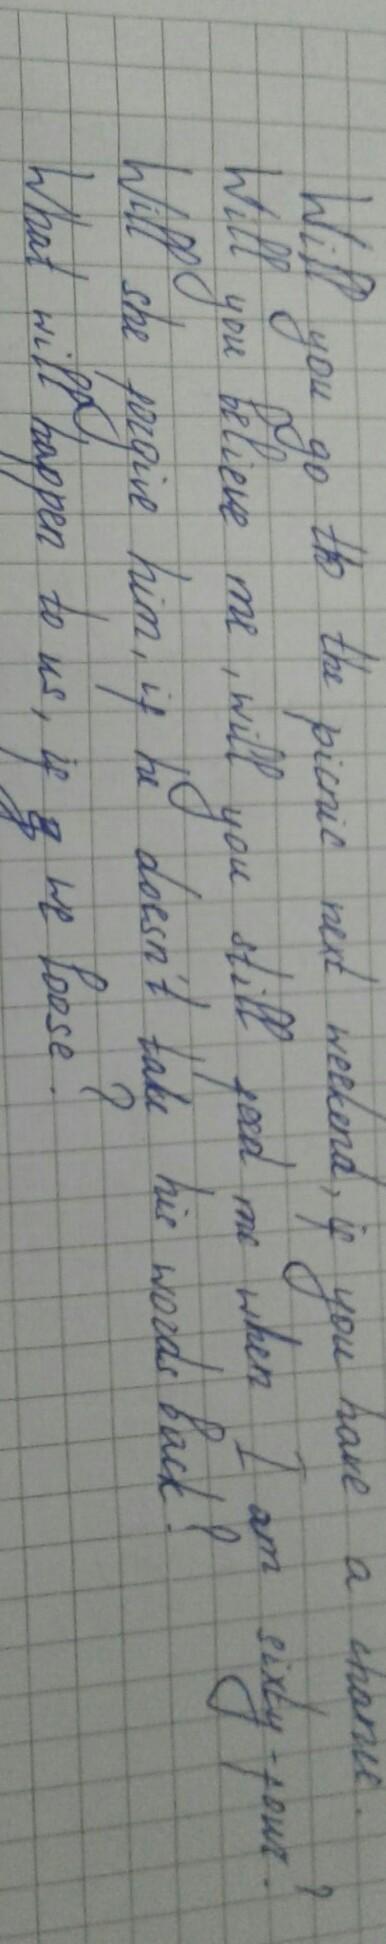 Will you go to the picnic next weekend, if you have a chance.
Will you believe me, will you still feed me when I am sixty-four?
Will she forgive him, if he doesn't take his words back?
What will happen to us, if we loose?